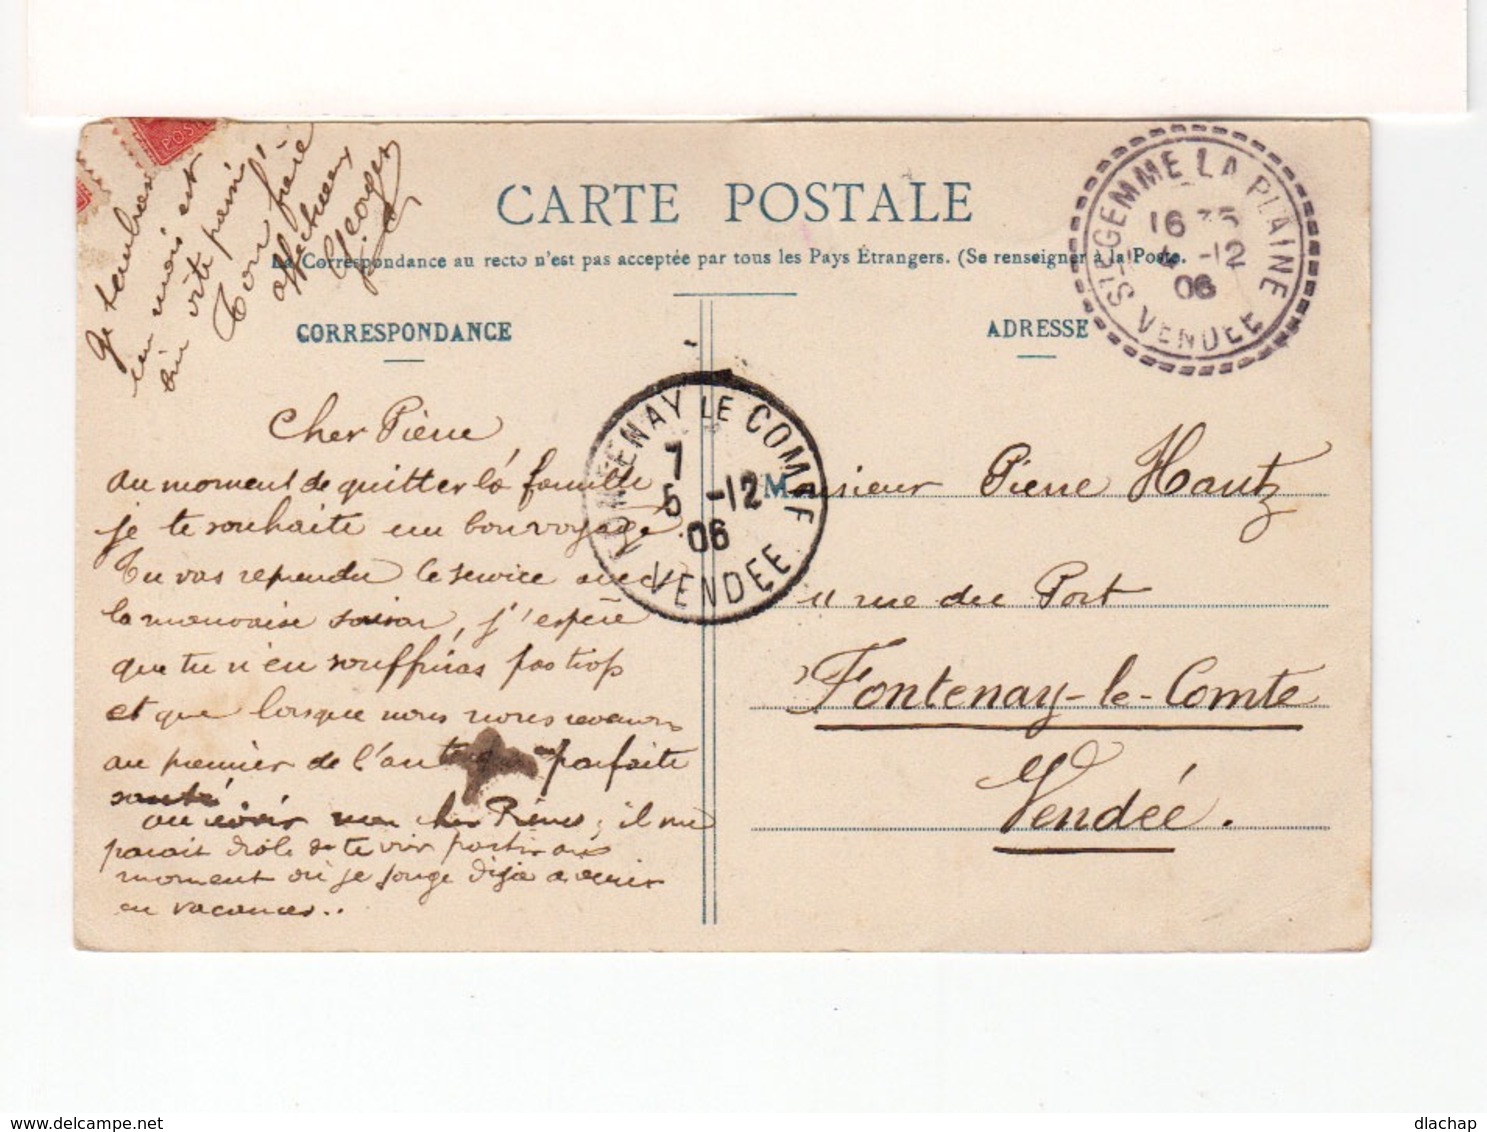 CARTE POSTALE
La Correspondance au recto n'est pas acceptée par tous les Pays Étrangers. (Se renseigner à la Poste.
CORRESPONDANCE
ADRESSE
STE GEMME LA PLAINE
16 35
4 -12
06
VENDEE
FONTENAY LE COMTE
7
5 -12
06
VENDEE
POSTE
Cher Pierre
au moment de quitter la famille
je te souhaite un bon voyage.
Tu vas reprendre le service avec
la mauvaise saison, j'espère
que tu n'en souffriras pas trop
et que lorsque nous nous reverrons
au premier de l'an parfaite
santé
au revoir mon cher Pierre, il me
parait drôle de te voir partir au
moment où je songe déjà a venir
en vacances..
Je t'embrasse
un mois est
bien vite passé
Ton frère
affectueux
Georges
Monsieur Pierre Hautz
11 rue du Port
Fontenay-le-Comte
Vendée.
delcampe.net
dlachap